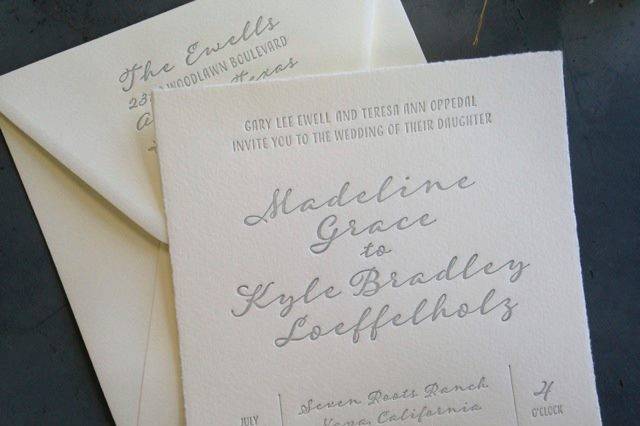 The Ewells
WOODLAWN BOULEVARD
GARY LEE EWELL AND TERESA ANN OPPEDAL
INVITE YOU TO THE WEDDING OF THEIR DAUGHTER
Madeline
Grace
to
Kyle Bradley
Loeffelholz
JULY
Seven Roots Ranch
Napa, California
4
O'CLOCK